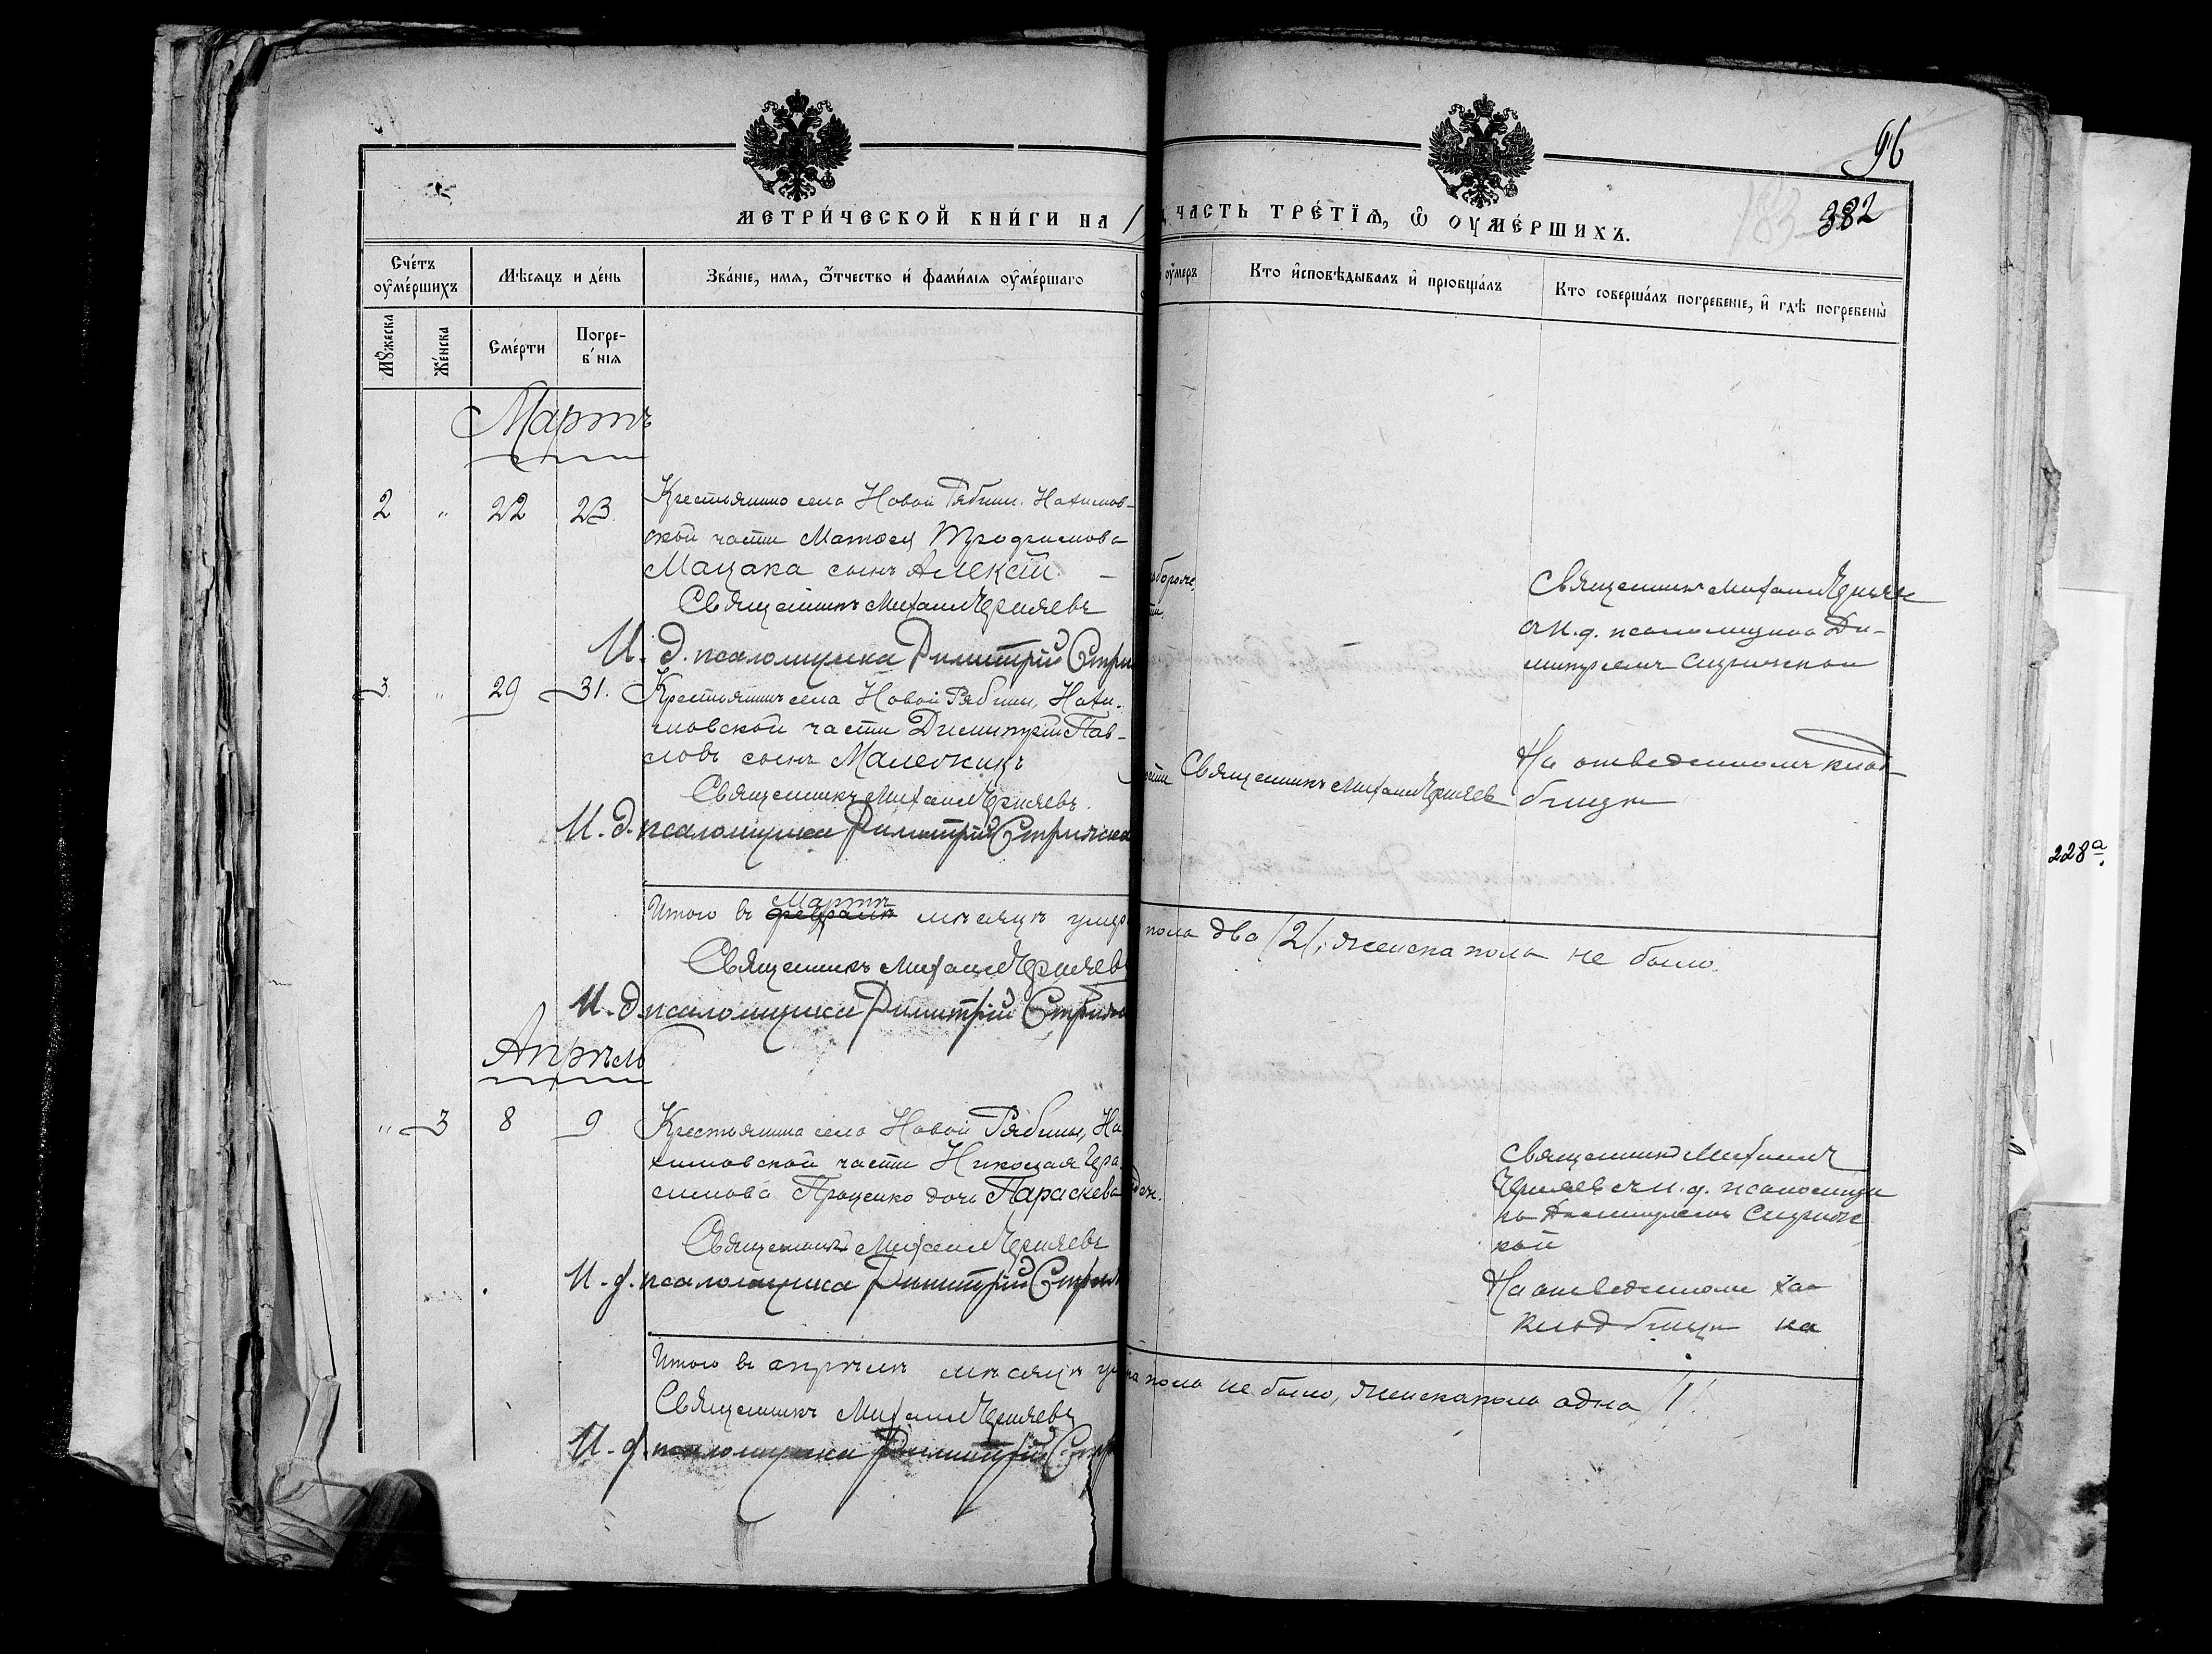 96
183 382
МЕТРИ́ЧЕСКОЙ КНИ́ГИ НА 1
ЧАСТЬ ТРЕ́ТЇѦ, Ѿ ОУМЕ́РШИХЪ.
Сче́тъ оуме́ршихъ
Мѣсяцъ и де́нь
Зва́нїе, имѧ, ѿтчество и фами́лїѧ оуме́ршаго
оумеръ
Кто исповѣ́дывалъ и прїобща́лъ
Кто соверша́лъ погребенїе, и гдѣ погребены̀
Мꙋжеска
Же́нска
Сме́рти
Погре-
б нїѧ
Мартъ
2 " 22 23
Крестьянина села Новой Рябины, Нахимов-
ской части Матоея Трофимова
Мацака сынъ Алексѣй. –
Священникъ Михаилъ Черняевъ
И. д. псаломщика Димитрій Стри
Священникъ Михаилъ Черняе
съ И. д. псаломщика Ди-
митріемъ
3. " 29 31.
Крестьянинъ села Новой Рябины, Нахи-
мовской части Димитрій Пав-
ловъ сынъ
Священникъ Михаилъ Черняевъ.
И. д. псаломщика Димитрій Стрижска
Священникъ Михаилъ Черняев
На отведенномъ клад
бищѣ
Итого въ февралѣ Мартѣ мѣсяцѣ умер
пола два /2/, женска пола не было.
Священникъ Михаилъ Черняев
И. д. псаломщика Димитрій Стри
Апрѣль
" 3 8 9
Крестьянина села Новой Рябины, На
химовской части Николая Гера
симова Проценко дочь Параскева
Священникъ Михаилъ Черняевъ
И. д. псаломщика Димитрій Стри
Священникъ Михаилъ
Черняевъ съ И. д. псаломщи
ка Димитріемъ
кой
На отведенномъ
кладбищѣ на
Итого въ апрѣлѣ мѣсяцѣ у
пола не было, женска пола одна /1/.
Священникъ Михаилъ Черняевъ
И. д. псаломщика Димитрій Стр
228а.